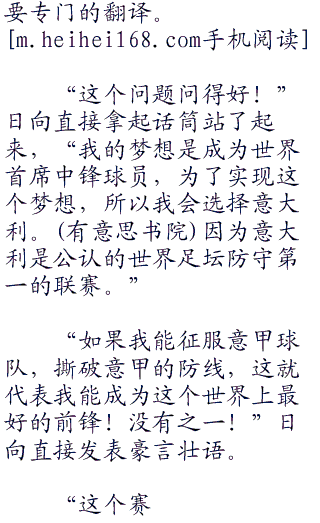 要专门的翻译。
[m.heihei168.com手机阅读]
“这个问题问得好！”
日向直接拿起话筒站了起
来，“我的梦想是成为世界
首席中锋球员，为了实现这
个梦想，所以我会选择意大
利。(有意思书院)因为意大
利是公认的世界足坛防守第
一的联赛。”
“如果我能征服意甲球
队，撕破意甲的防线，这就
代表我能成为这个世界上最
好的前锋！没有之一！”日
向直接发表豪言壮语。
“这个赛